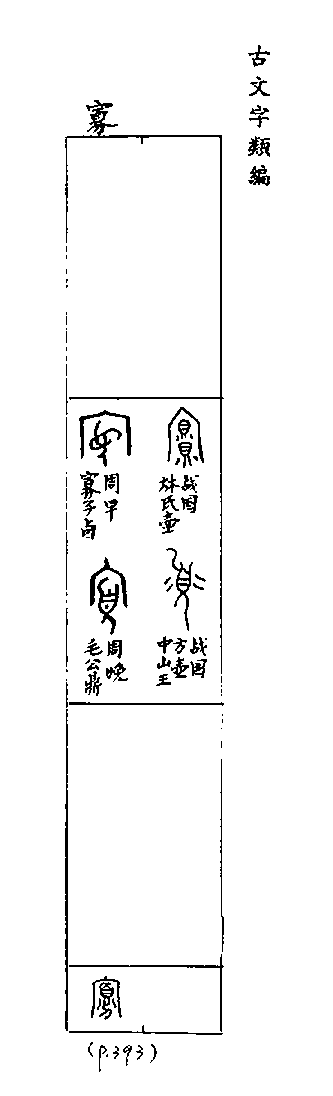 古文字類編
寡
周早
寡子卣
周晚
毛公鼎
战国
𣏟氏壶
战国
方壶
中山王
寡
(p.393)